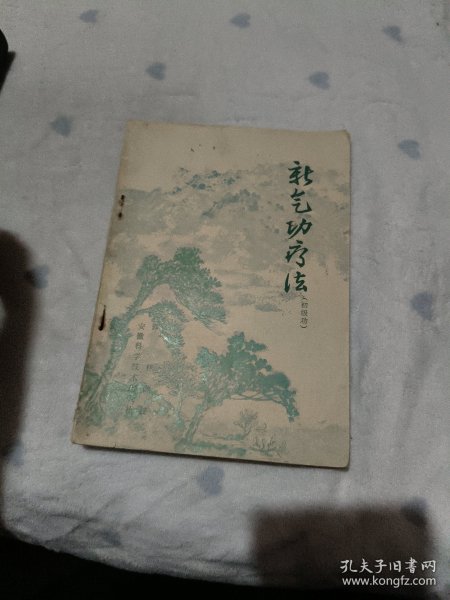 新气功疗法
(初级功)
安徽科学技术出版社
孔夫子旧书网
www.kongfz.com